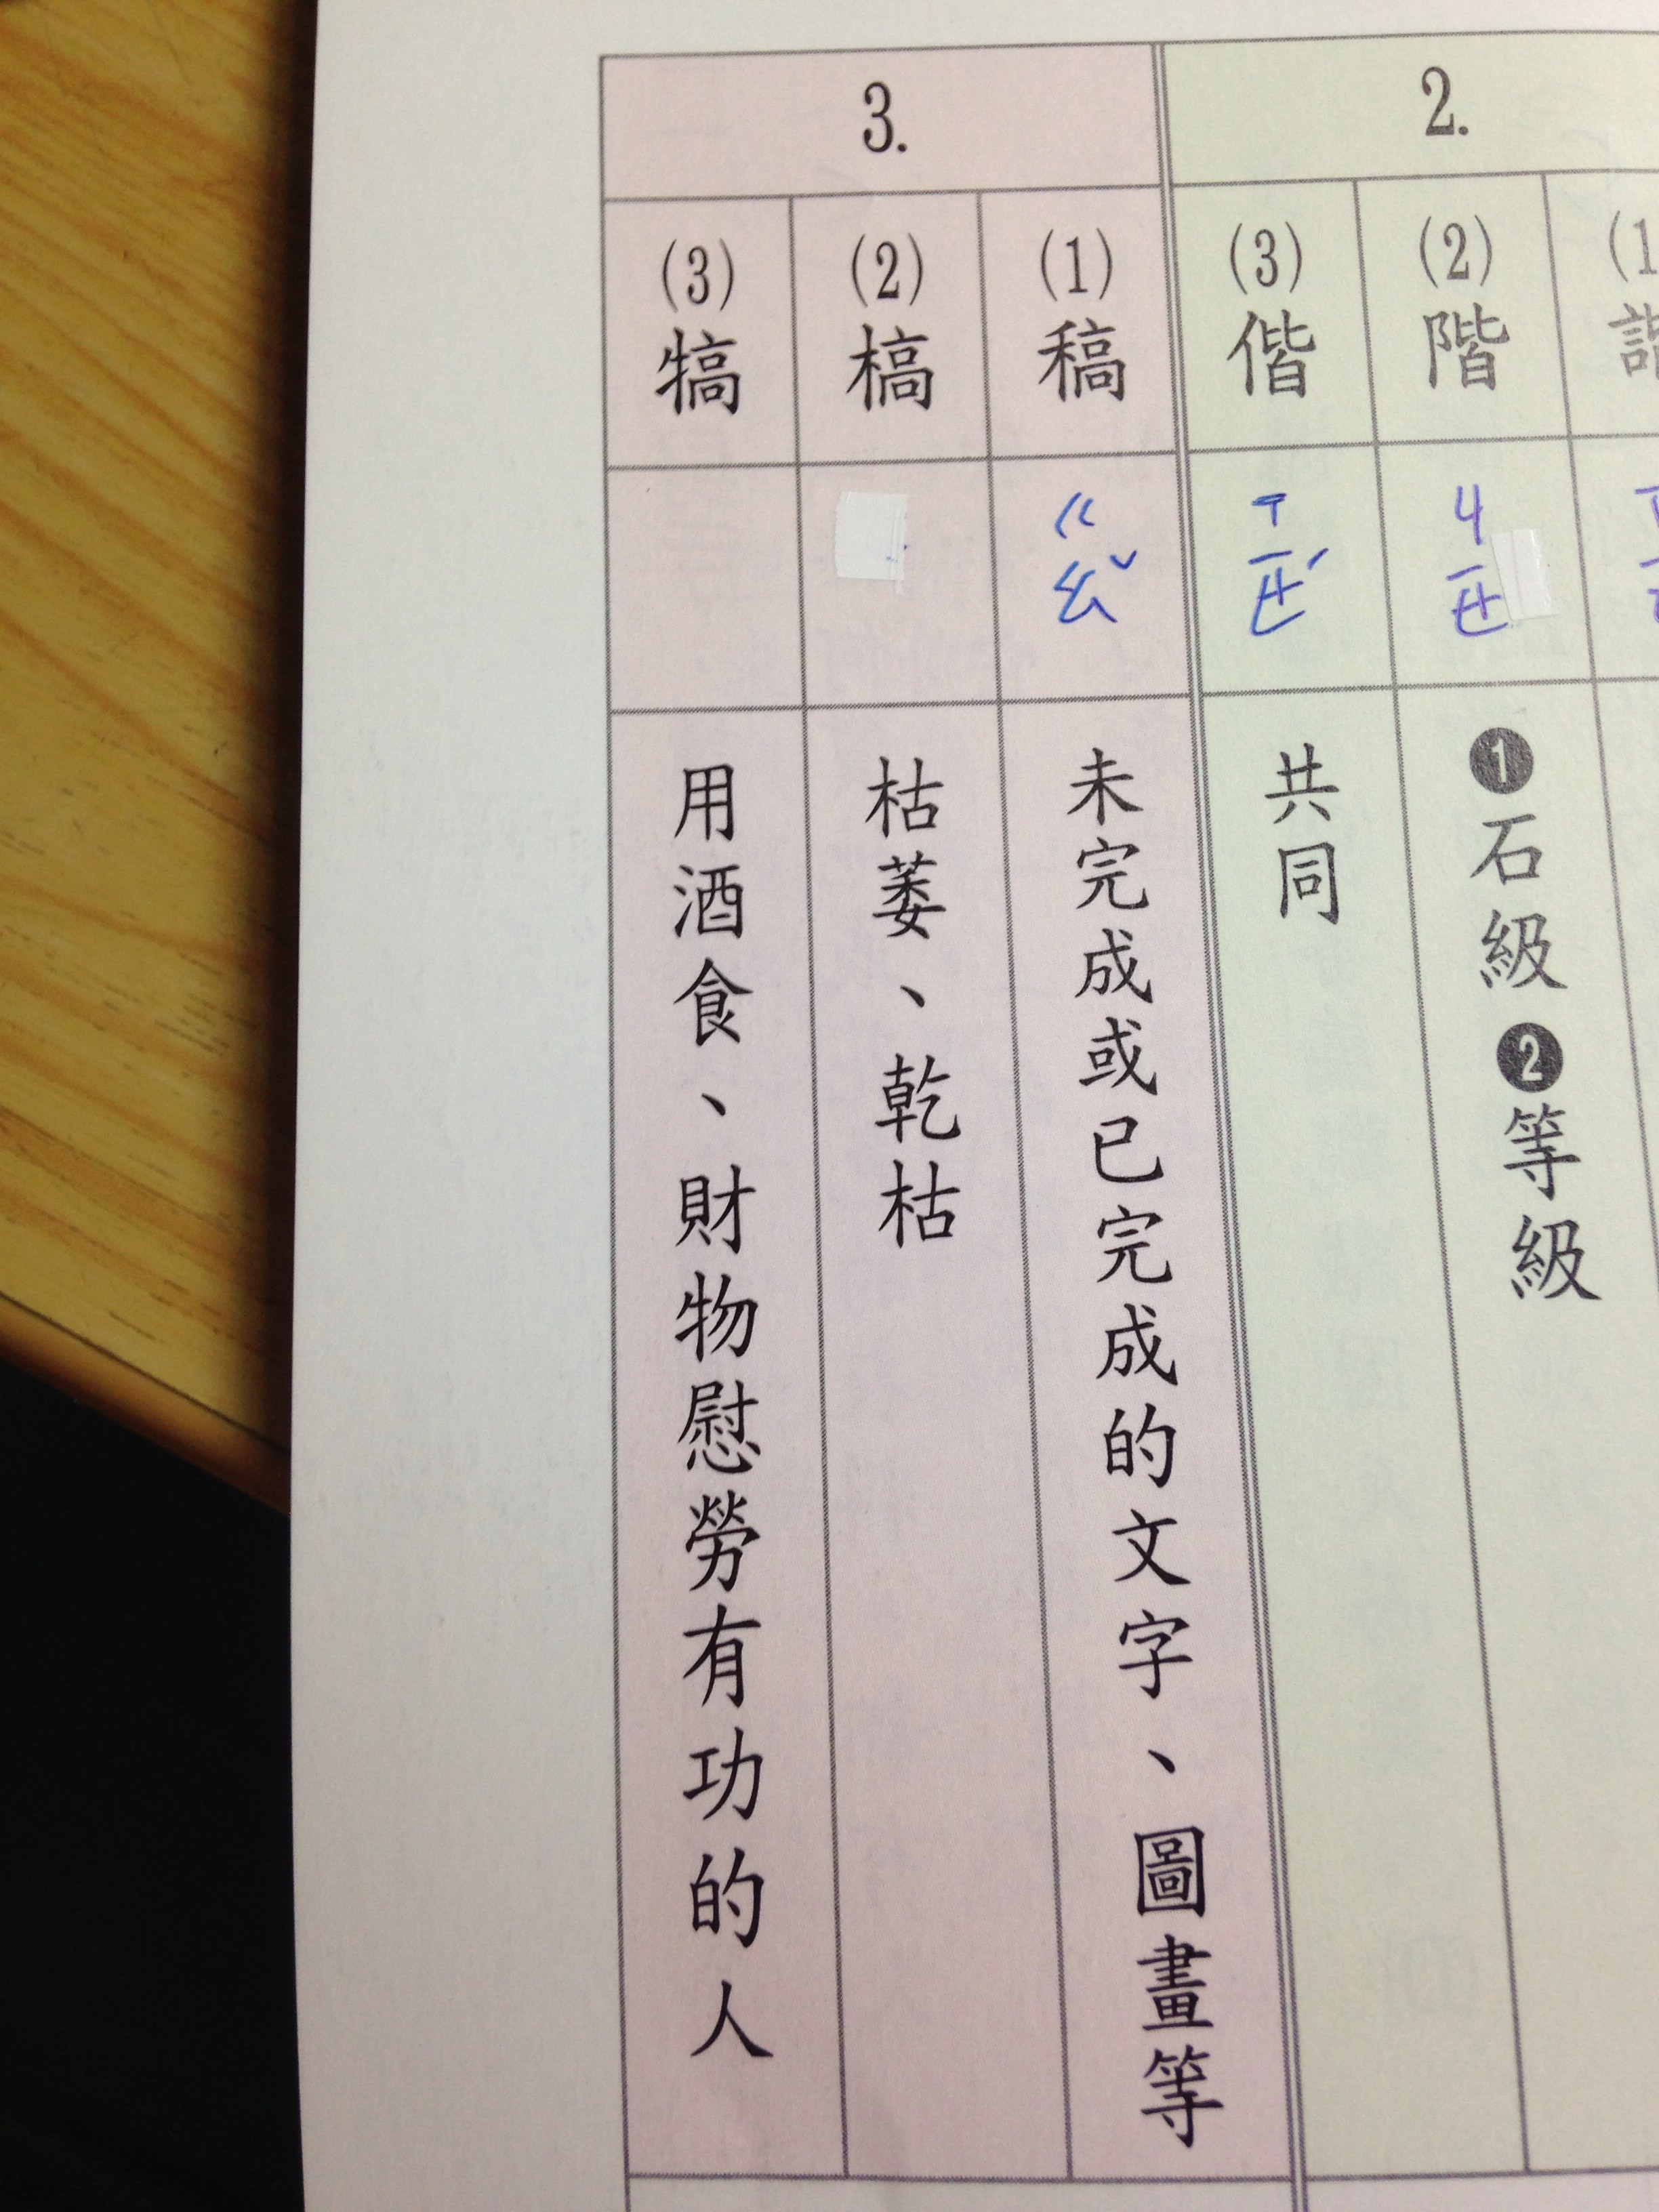 2.
(2)階
ㄐㄧㄝ
❶石級❷等級
(3)偕
ㄒㄧㄝˊ
共同
3.
(1)稿
ㄍㄠˇ
未完成或已完成的文字、圖畫等
(2)槁
枯萎、乾枯
(3)犒
用酒食、財物慰勞有功的人